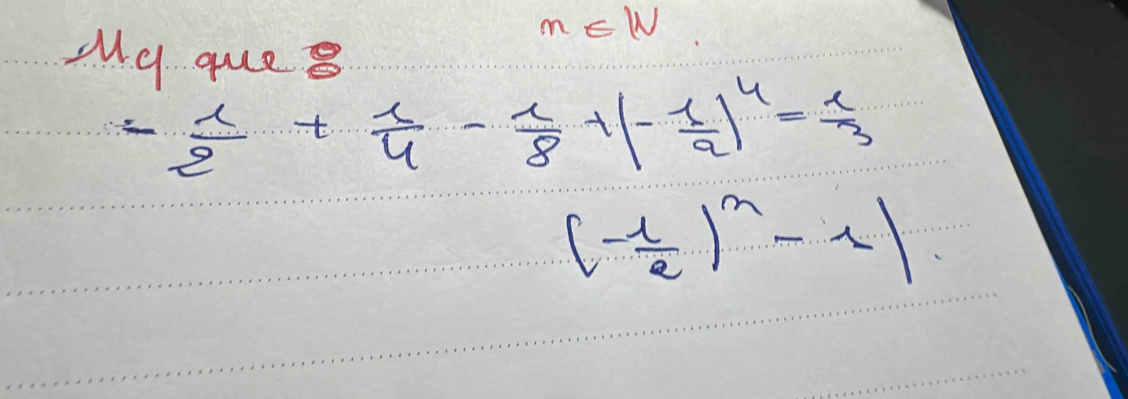 Mq que : n ∈ ℕ.
- 1/2 + 1/4 - 1/8 + (-1/2)^4 = 1/3
((-1/2)^n - 1).